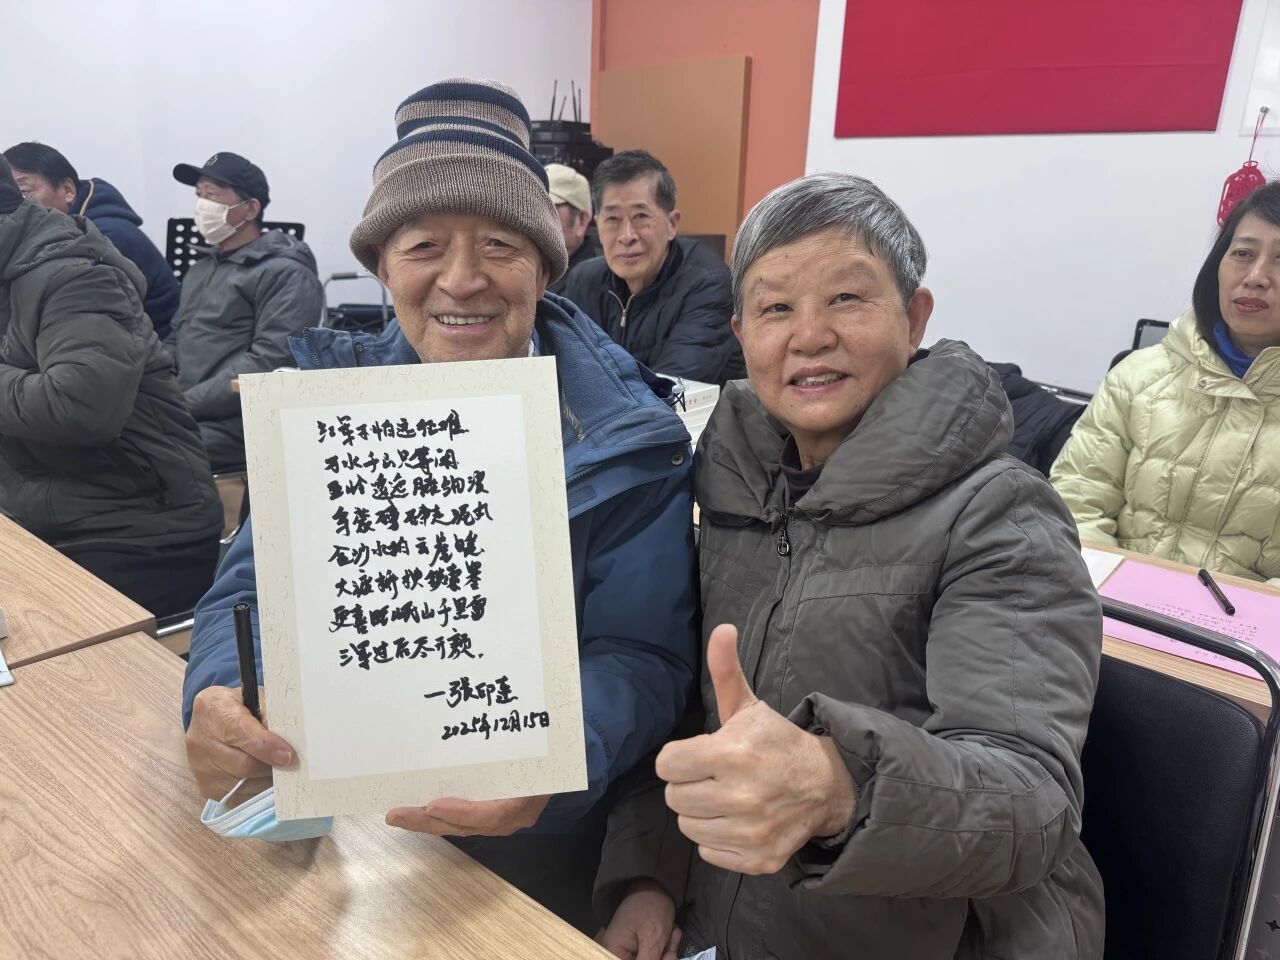 红军不怕远征难
万水千山只等闲
五岭逶迤腾细浪
乌蒙磅礴走泥丸
金沙水拍云崖暖
大渡桥横铁索寒
更喜岷山千里雪
三军过后尽开颜.
—张印莲
2025年12月15日